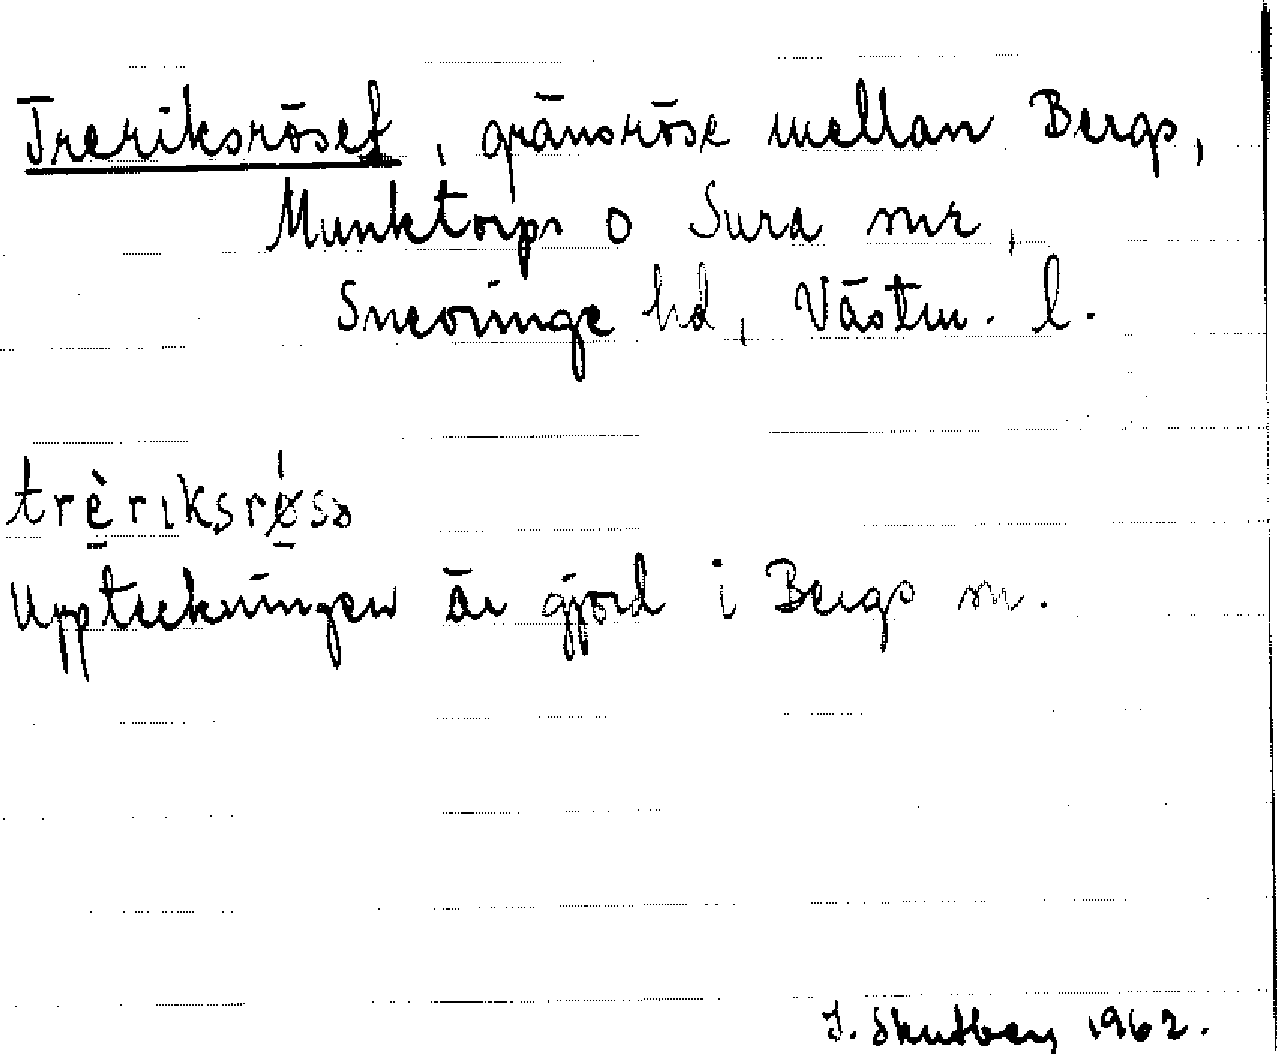 Treriksröset, gränsröse mellan Bergs,
Munktorps o Sura snr,
Snevringe hd, Västm. l.
trè̱riksrǿ̱sə
Uppteckningen är gjord i Bergs sn.
I. Skutberg 1962.